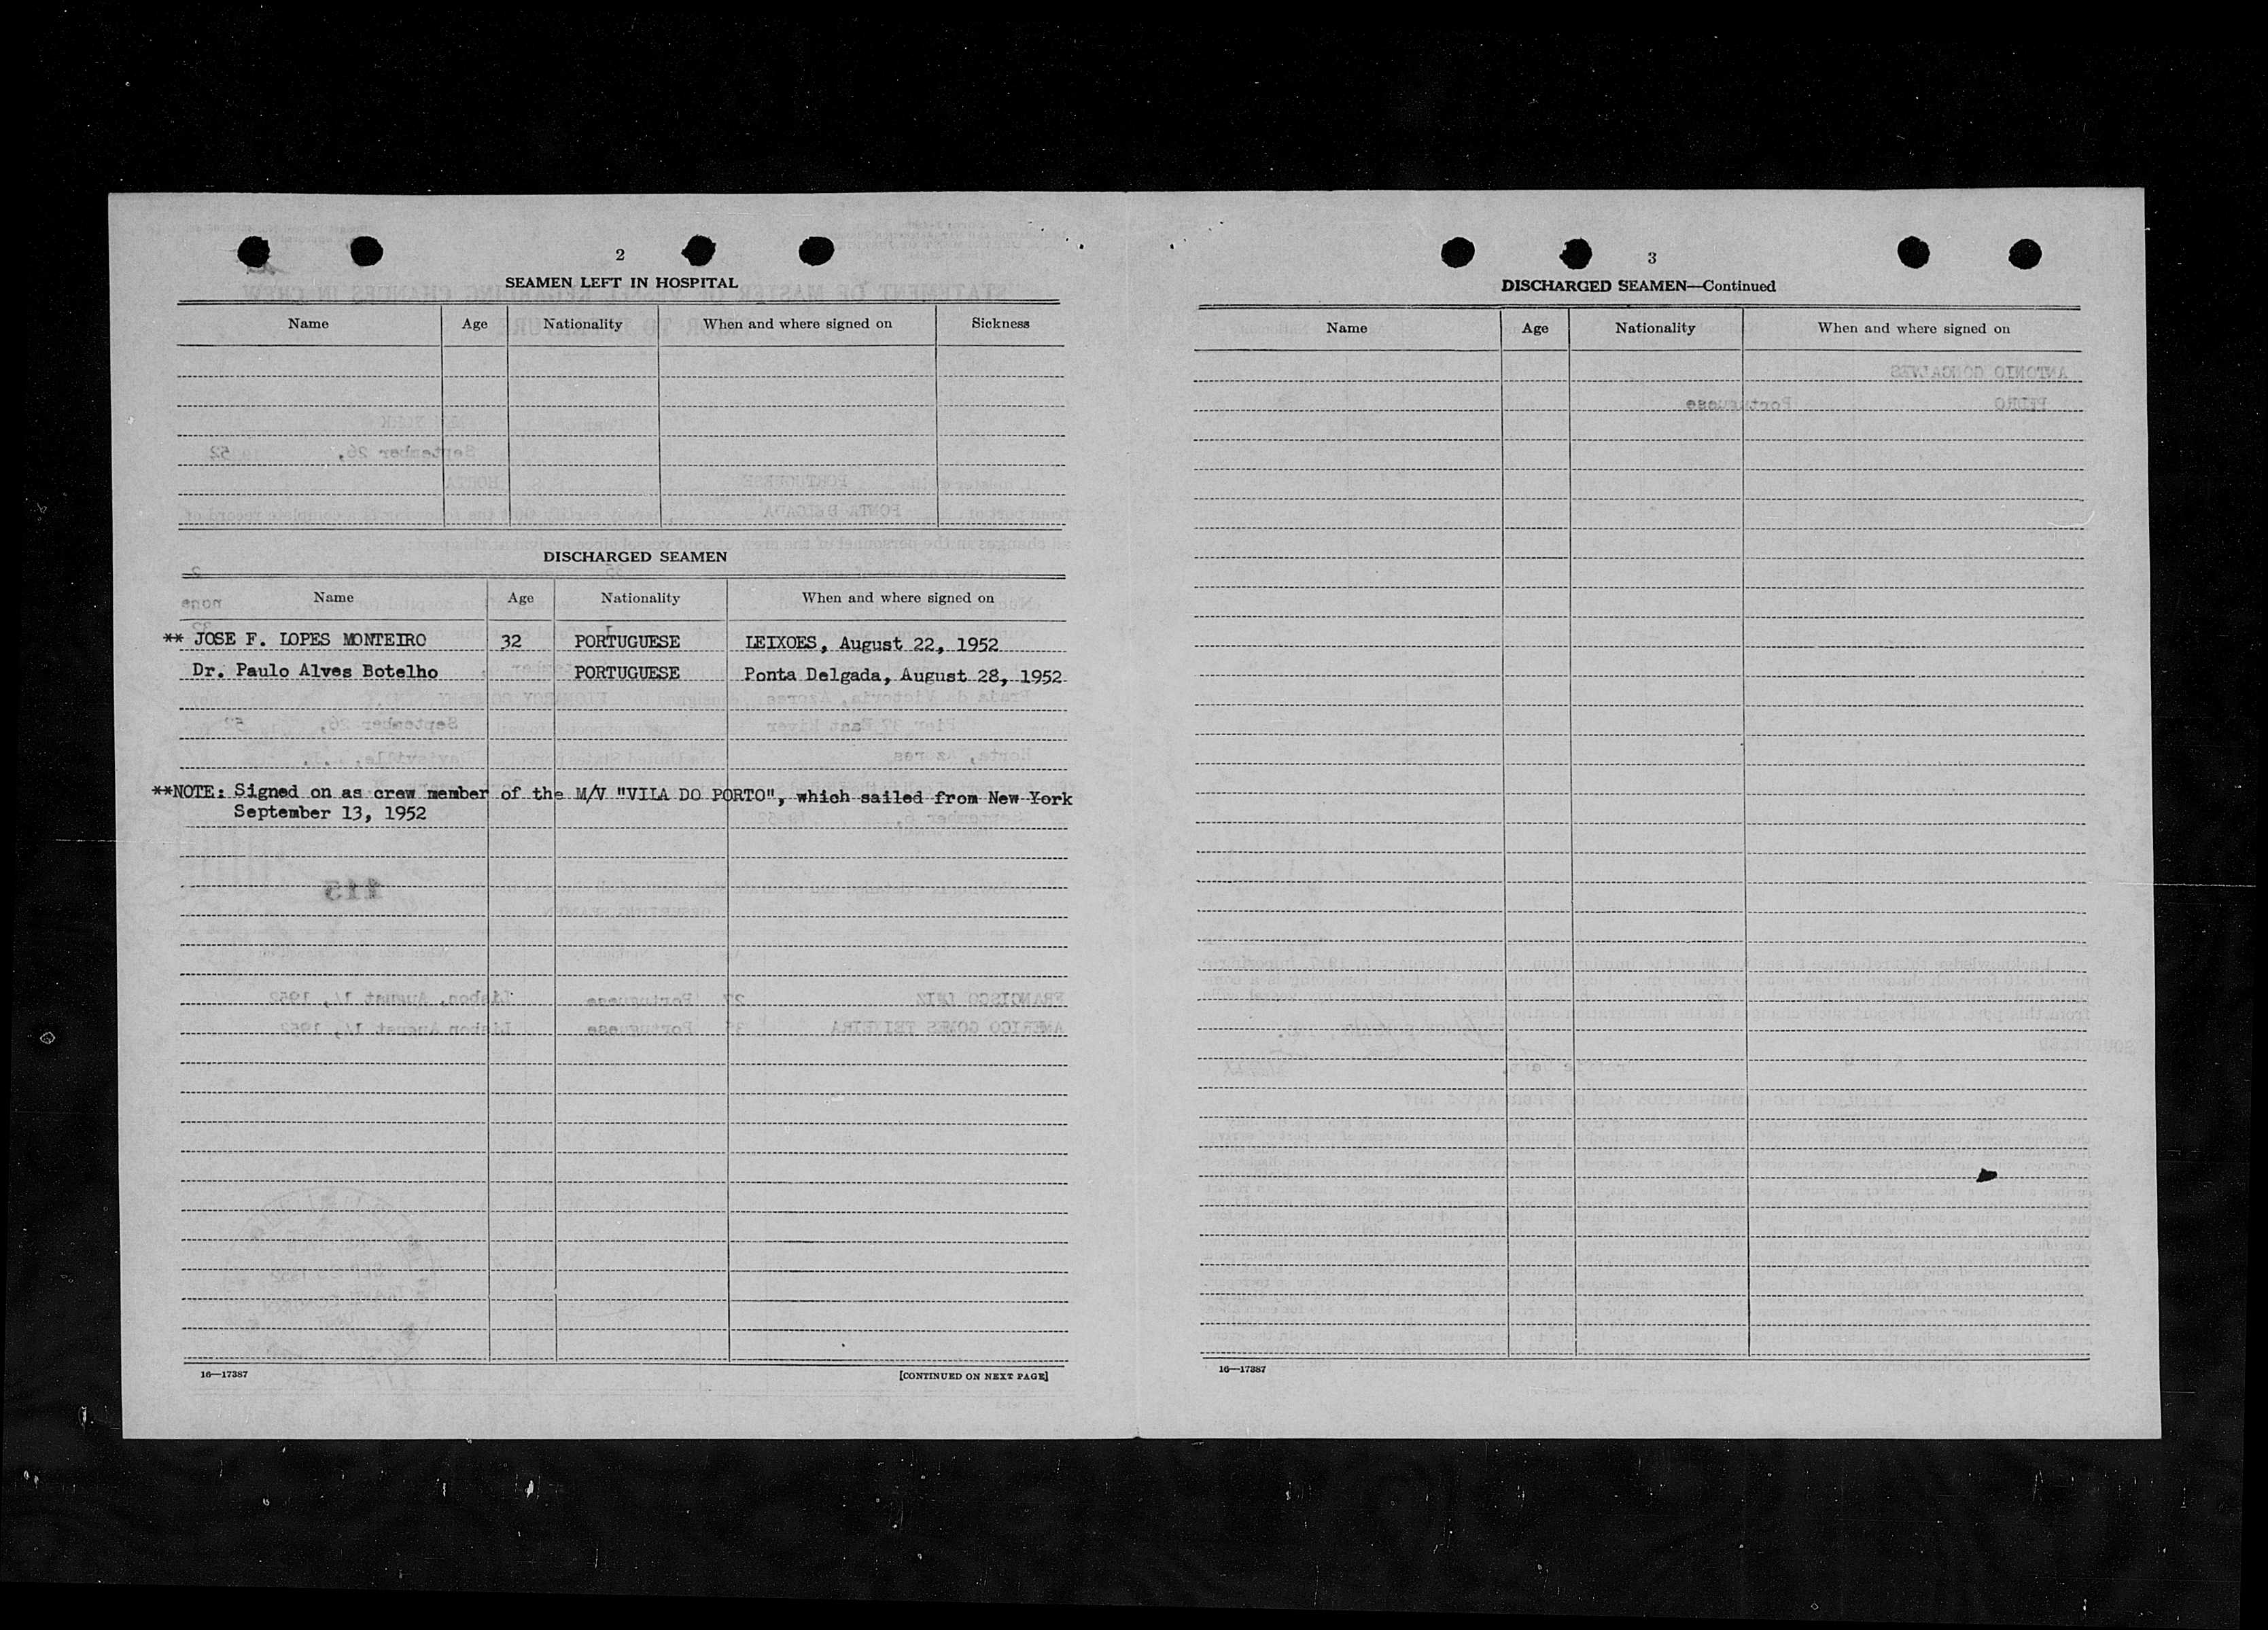 2
SEAMEN LEFT IN HOSPITAL
Name Age Nationality When and where signed on Sickness
DISCHARGED SEAMEN
Name Age Nationality When and where signed on
** JOSE F. LOPES MONTEIRO 32 PORTUGUESE LEIXOES, August 22, 1952
Dr. Paulo Alves Botelho PORTUGUESE Ponta Delgada, August 28, 1952
**NOTE: Signed on as crew member of the M/V "VILA DO PORTO", which sailed from New York
September 13, 1952
16—17387 [CONTINUED ON NEXT PAGE]
3
DISCHARGED SEAMEN—Continued
Name Age Nationality When and where signed on
16—17387